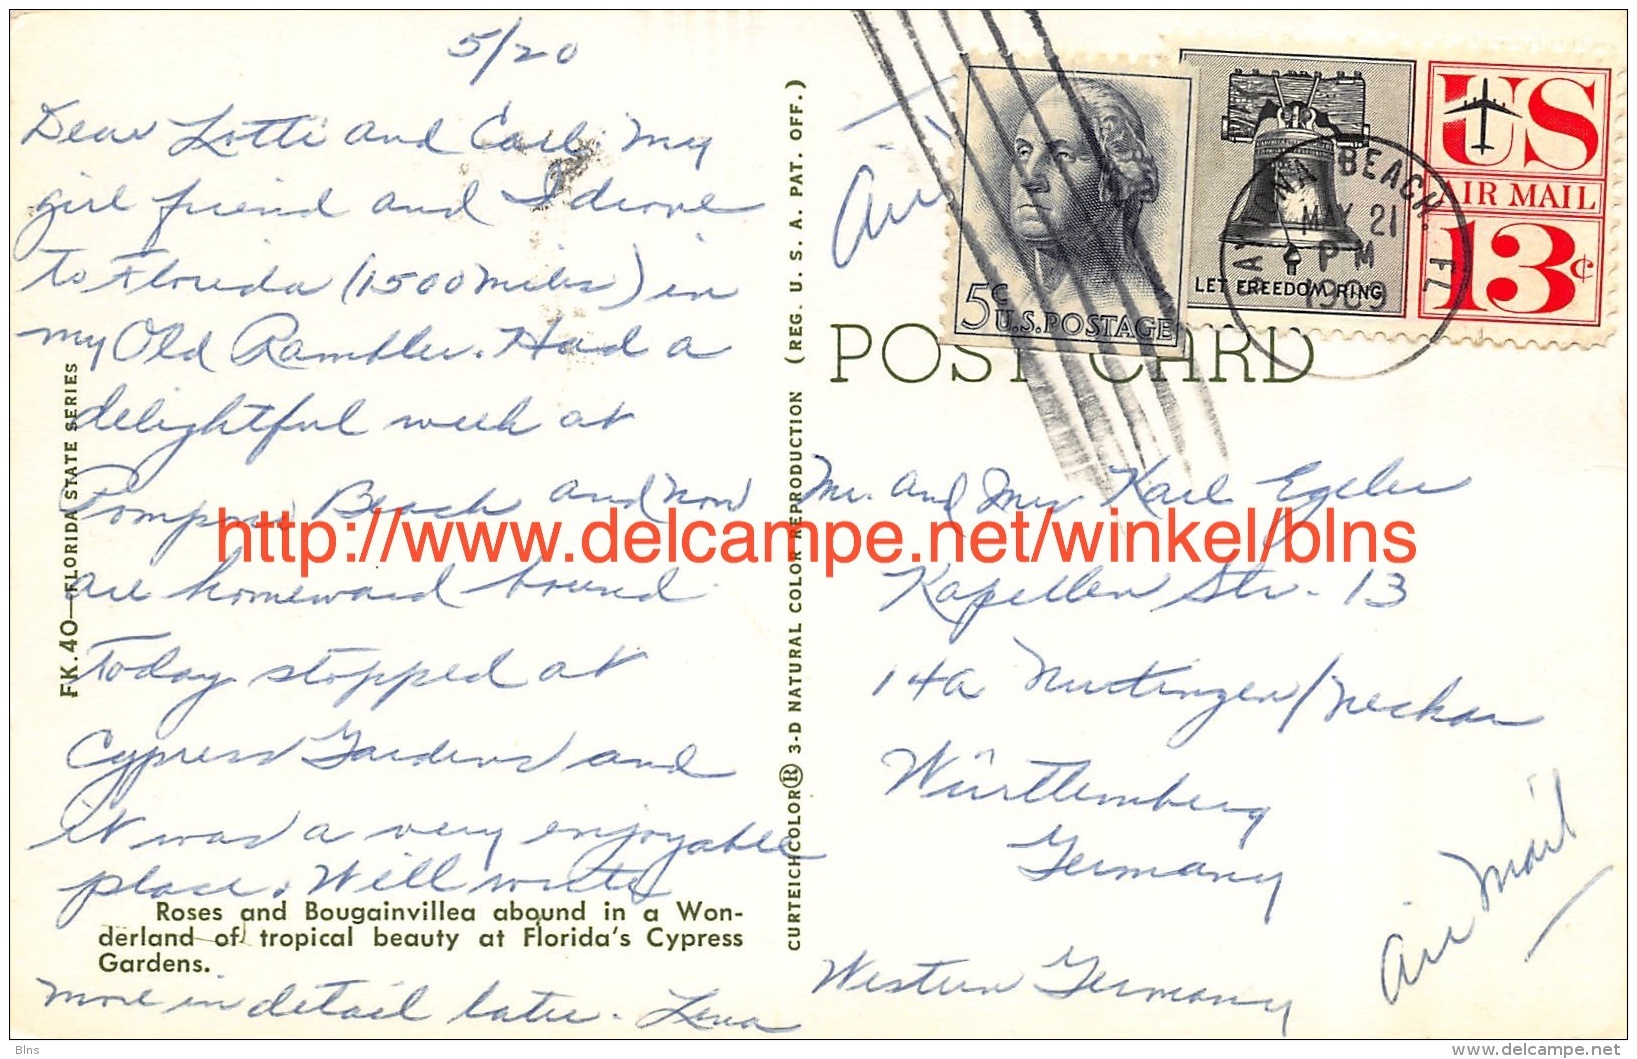 5/20
Dear Lotti and Carl: My
girl friend and I drove
to Florida (1500 miles) in
my Old Rambler. Had a
delightful week at
Pompano Beach and now
are homeward bound.
Today stopped at
Cypress Gardens and
it was a very enjoyable
place. Will write
more in detail later. Lena
Roses and Bougainvillea abound in a Won-
derland of tropical beauty at Florida's Cypress
Gardens.
FK.40—FLORIDA STATE SERIES
CURTEICHCOLOR® 3-D NATURAL COLOR REPRODUCTION (REG. U. S. A. PAT. OFF.)
POST CARD
Air
5c
U.S. POSTAGE
LET FREEDOM RING
US
AIR MAIL
13c
DAYTONA BEACH, FL
MAY 21
PM
1969
Mr. and Mrs Karl Egeler
Kapellen Str. 13
14a Nurtingen/Neckar
Württemberg
Germany
Western Germany
Air Mail
http://www.delcampe.net/winkel/blns
Blns
www.delcampe.net